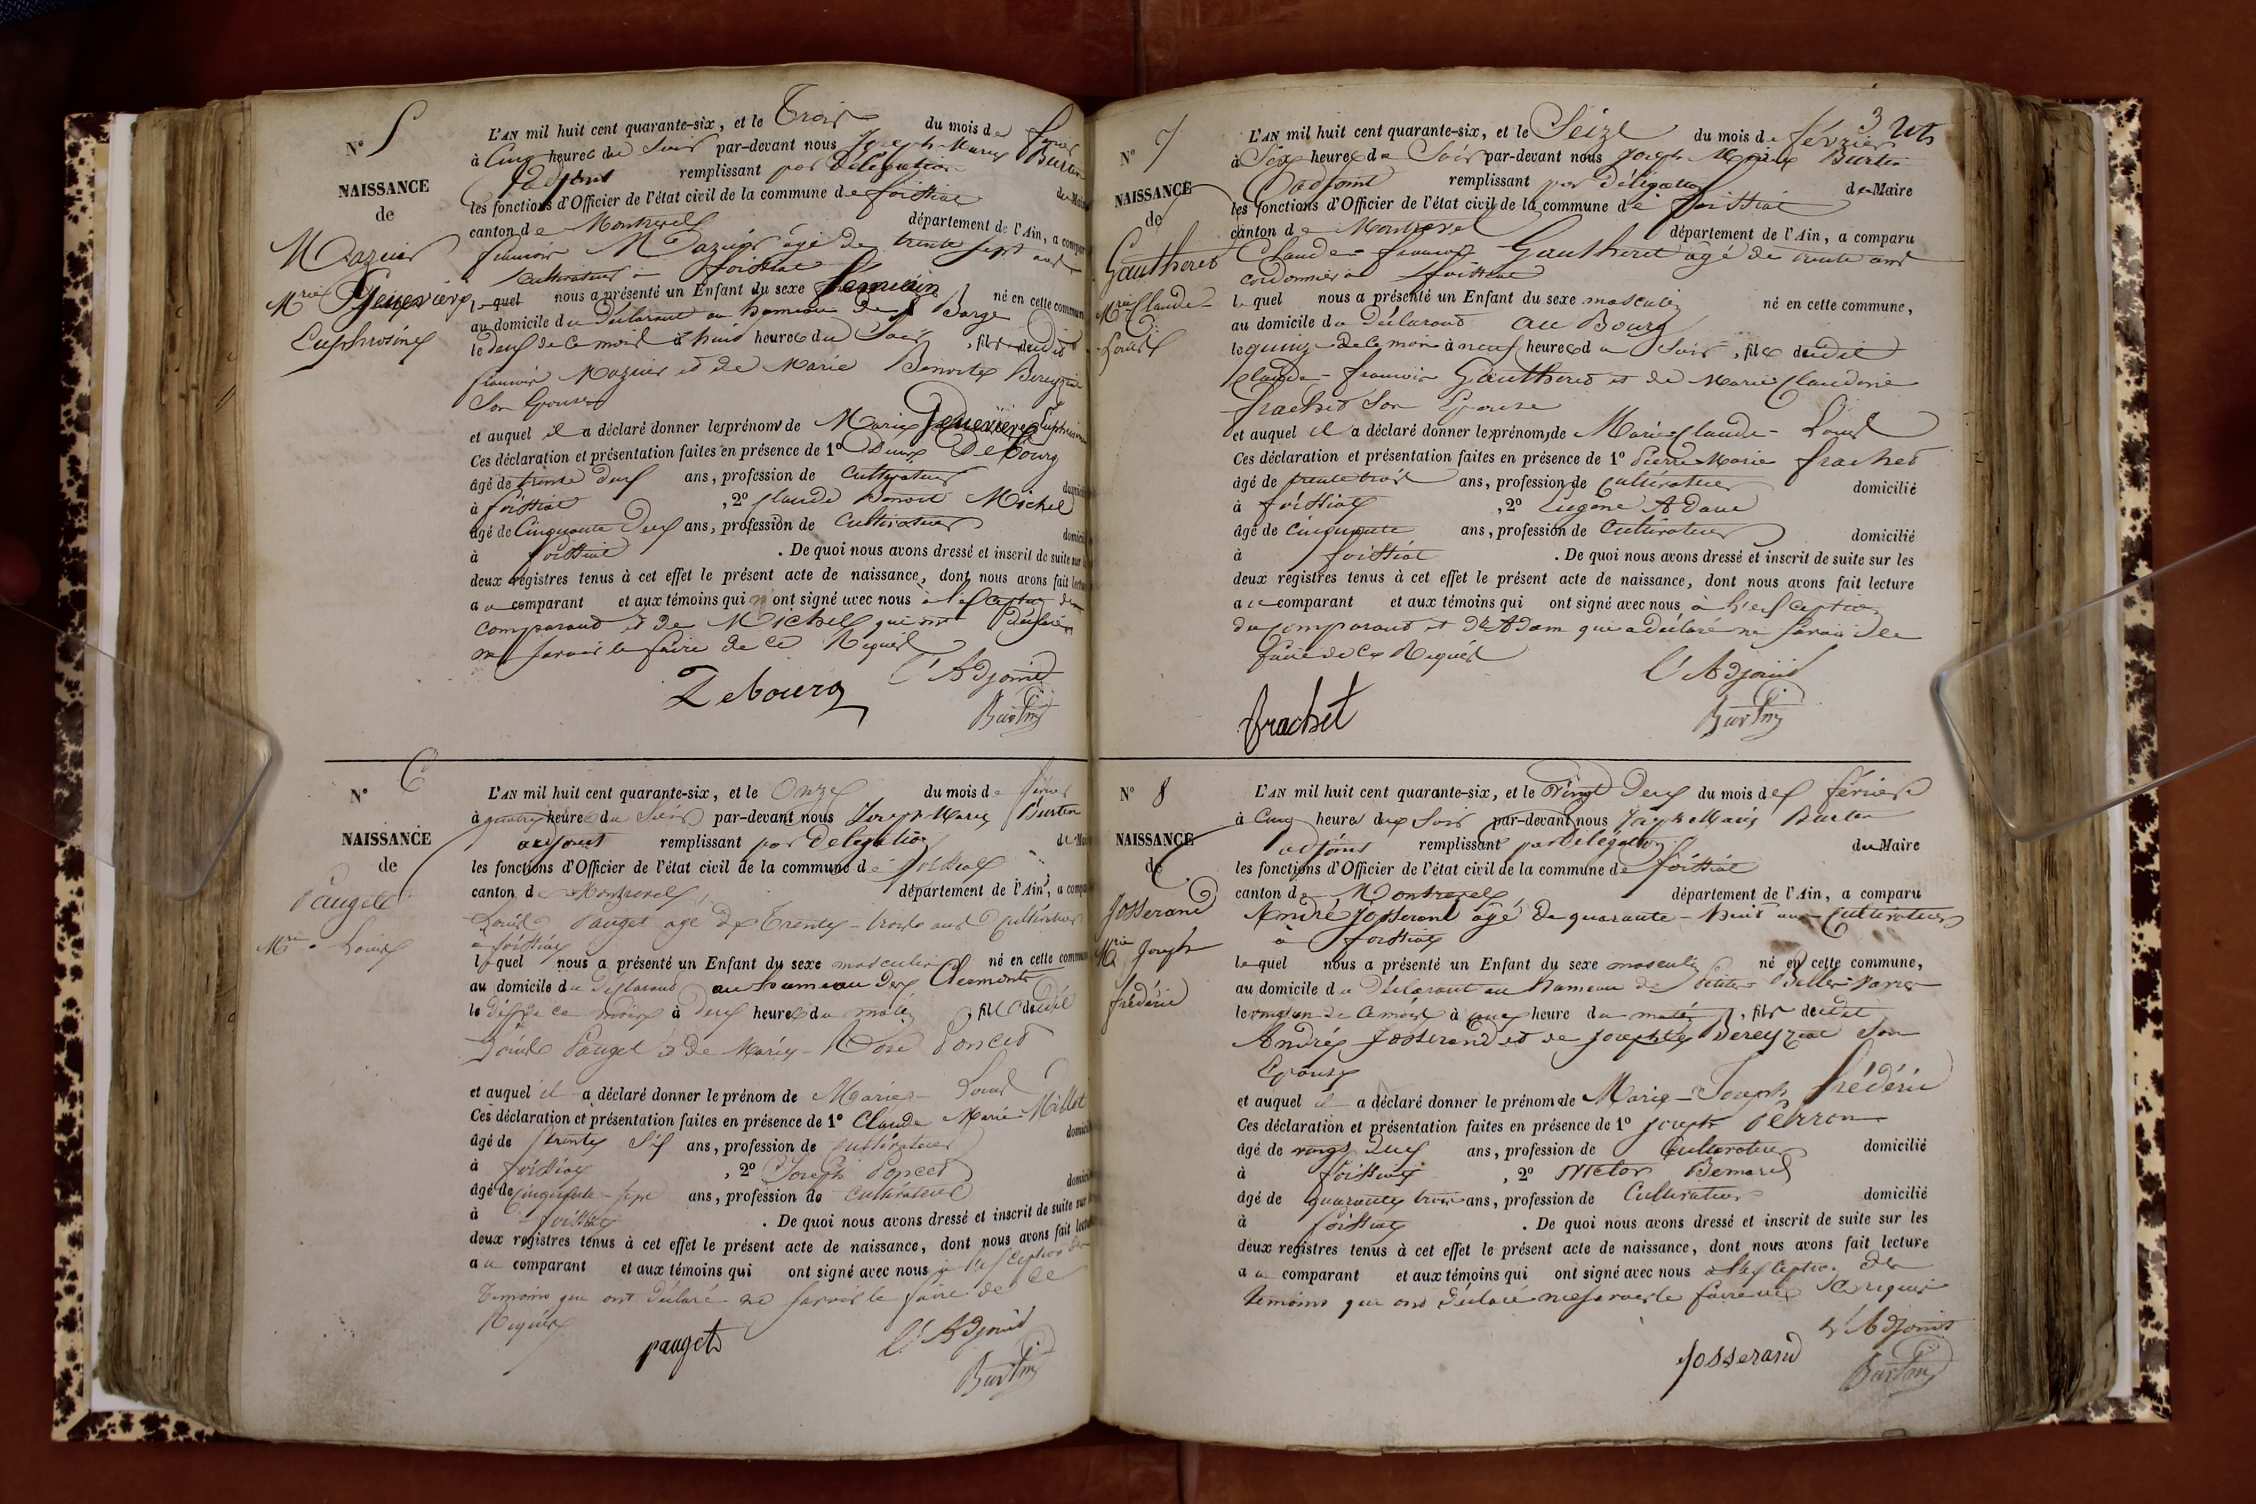 N° 5
NAISSANCE
de
Mazuir
Mrie Genevieve
Euphrosine
L'AN mil huit cent quarante-six, et le Trois du mois de fevrier
à Cinq heures du Soir par-devant nous Joseph-Marie Burtin
adjoint remplissant par Délégation du Maire
les fonctions d'Officier de l'état civil de la commune de foissiat
canton de Montrevel département de l'Ain, a comparu
francois Mazuir âgé de trente sept ans
cultivateur à foissiat
lequel nous a présenté un Enfant du sexe feminin né en cette commune
au domicile du déclarant au hameau de Barge
le deux de ce mois à huit heures du Soir, fille dudit
francois Mazuir et de Marie Benoite Bereyziat
Son Epouse
et auquel il a déclaré donner les prénoms de Marie Genevieve Euphrosine
Ces déclaration et présentation faites en présence de 1° Denis Debourg
âgé de trente deux ans, profession de cultivateur domicilié
à foissiat, 2° Claude Benoit Michel
âgé de Cinquante Deux ans, profession de cultivateur domicilié
à foissiat. De quoi nous avons dressé et inscrit de suite sur les
deux registres tenus à cet effet le présent acte de naissance, dont nous avons fait lecture
au comparant et aux témoins qui ont signé avec nous à l'exception du
comparant et de Michel qui ont déclaré
ne savoir le faire de ce Requis
Debourg l'Adjoint
Burtin
N° 6
NAISSANCE
de
Pauget
Mrie Louis
L'AN mil huit cent quarante-six, et le Onze du mois de février
à quatre heures du Soir par-devant nous Joseph Marie Burtin
adjoint remplissant par Délégation du Maire
les fonctions d'Officier de l'état civil de la commune de foissiat
canton de Montrevel département de l'Ain, a comparu
Louis Pauget age de Trente-trois ans Cultivateur
à foissiat
lequel nous a présenté un Enfant du sexe masculin né en cette commune
au domicile du déclarant au hameau des Cleamonts
le dix de ce mois à deux heures du matin, fils dudit
Louis Pauget et de Marie-Rose Poncet
et auquel il a déclaré donner le prénom de Marie-Louis
Ces déclaration et présentation faites en présence de 1° Claude Marie Millet
âgé de trente six ans, profession de cultivateur domicilié
à foissiat, 2° Joseph Poncet
âgé de Cinquante-sept ans, profession de cultivateur domicilié
à foissiat. De quoi nous avons dressé et inscrit de suite sur les
deux registres tenus à cet effet le présent acte de naissance, dont nous avons fait lecture
au comparant et aux témoins qui ont signé avec nous à l'exception des
témoins qui ont déclaré ne savoir le faire de ce
Requis
pauget l'Adjoint
Burtin
3
N° 7
NAISSANCE
de
Gautheret
Mrie Claude
Louis
L'AN mil huit cent quarante-six, et le Seize du mois de février
à Six heures du Soir par-devant nous Joseph Marie Burtin
adjoint remplissant par délégation du Maire
les fonctions d'Officier de l'état civil de la commune de foissiat
canton de Montrevel département de l'Ain, a comparu
Claude-francois Gautheret âgé de trente ans
cordonnier à foissiat
lequel nous a présenté un Enfant du sexe masculin né en cette commune,
au domicile du déclarant au Bourg
le quinze de ce mois à neuf heures du Soir, fils dudit
Claude-francois Gautheret et de Marie Claudine
frachet son Epouse
et auquel il a déclaré donner les prénoms de Marie-Claude-Louis
Ces déclaration et présentation faites en présence de 1° Pierre Marie frachet
âgé de trente trois ans, profession de Cultivateur domicilié
à foissiat, 2° Eugène Adam
âgé de cinquante ans, profession de Cultivateur domicilié
à foissiat. De quoi nous avons dressé et inscrit de suite sur les
deux registres tenus à cet effet le présent acte de naissance, dont nous avons fait lecture
au comparant et aux témoins qui ont signé avec nous à l'exception
du comparant et d'Adam qui a déclaré ne savoir le
faire de ce Requis
l'Adjoint
frachet Burtin
N° 8
NAISSANCE
de
Josserand
Mrie Joseph
frédéric
L'AN mil huit cent quarante-six, et le Vingt Deux du mois de février
à Cinq heures du Soir par-devant nous Joseph Marie Burtin
adjoint remplissant par délégation du Maire
les fonctions d'Officier de l'état civil de la commune de foissiat
canton de Montrevel département de l'Ain, a comparu
André Josserand âgé de quarante-huit ans Cultivateur
à foissiat
lequel nous a présenté un Enfant du sexe masculin né en cette commune,
au domicile du déclarant au hameau de Petite Belle-Vavre
le vingt un de ce mois à heure du matin, fils dudit
André Josserand et de Josephte Bereyziat son
Epouse
et auquel il a déclaré donner le prénom de Marie-Joseph frédéric
Ces déclaration et présentation faites en présence de 1° Joseph Perron
âgé de vingt deux ans, profession de Cultivateur domicilié
à foissiat, 2° Victor Bernard
âgé de quarante trois ans, profession de Cultivateur domicilié
à foissiat. De quoi nous avons dressé et inscrit de suite sur les
deux registres tenus à cet effet le présent acte de naissance, dont nous avons fait lecture
au comparant et aux témoins qui ont signé avec nous à l'exception des
témoins qui ont déclaré ne savoir le faire de ce requis
l'Adjoint
Josserand Burtin